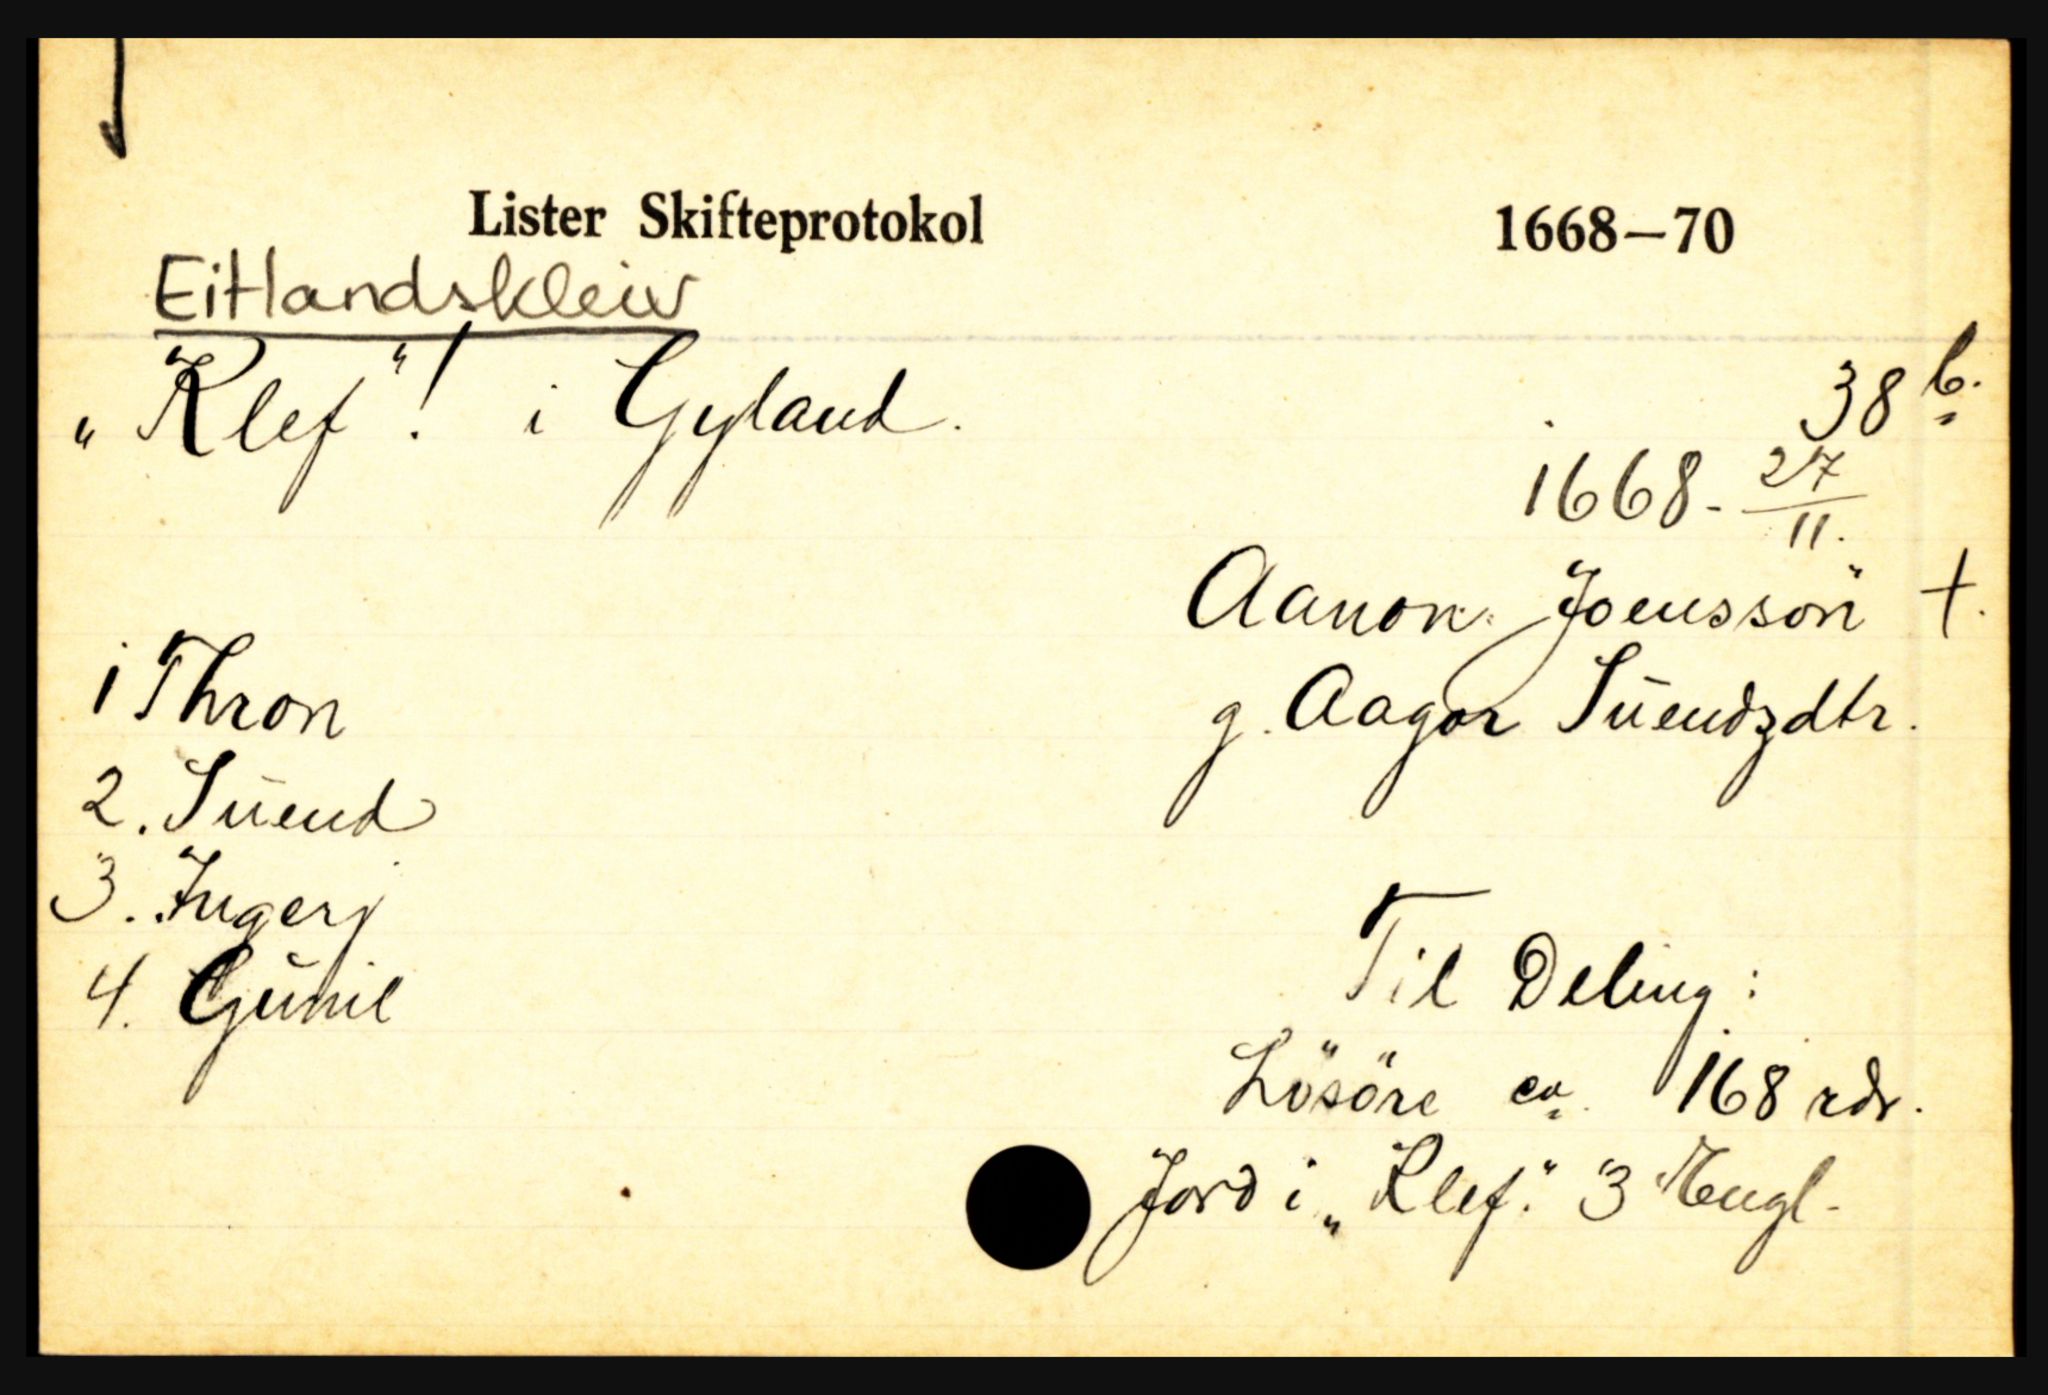 Lister Skifteprotokol 1668–70
Eitlandskleiv
„Klef“! i Gyland.
38 b.
1668. 27/11.
Aanon Joenssön +.
g. Aagor Sŭendzdtr.
1 Thron
2. Sŭend
3. Ingerj
4. Gŭnil
Til Deling:
Lösöre ca. 168 rdr.
Jord i „Klef.“ 3 Engl.